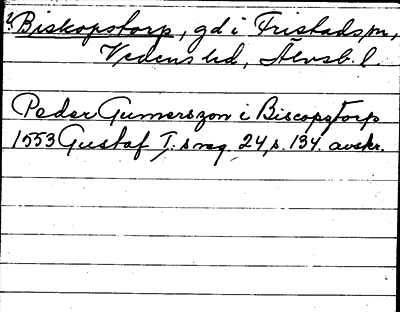 Biskopstorp, gd i Fristads sn,
Vedens hd, Älvsb. l.
Peder Gumerszon i Biscopztorp
1553 Gustaf I:s reg. 24, s. 134. avskr.